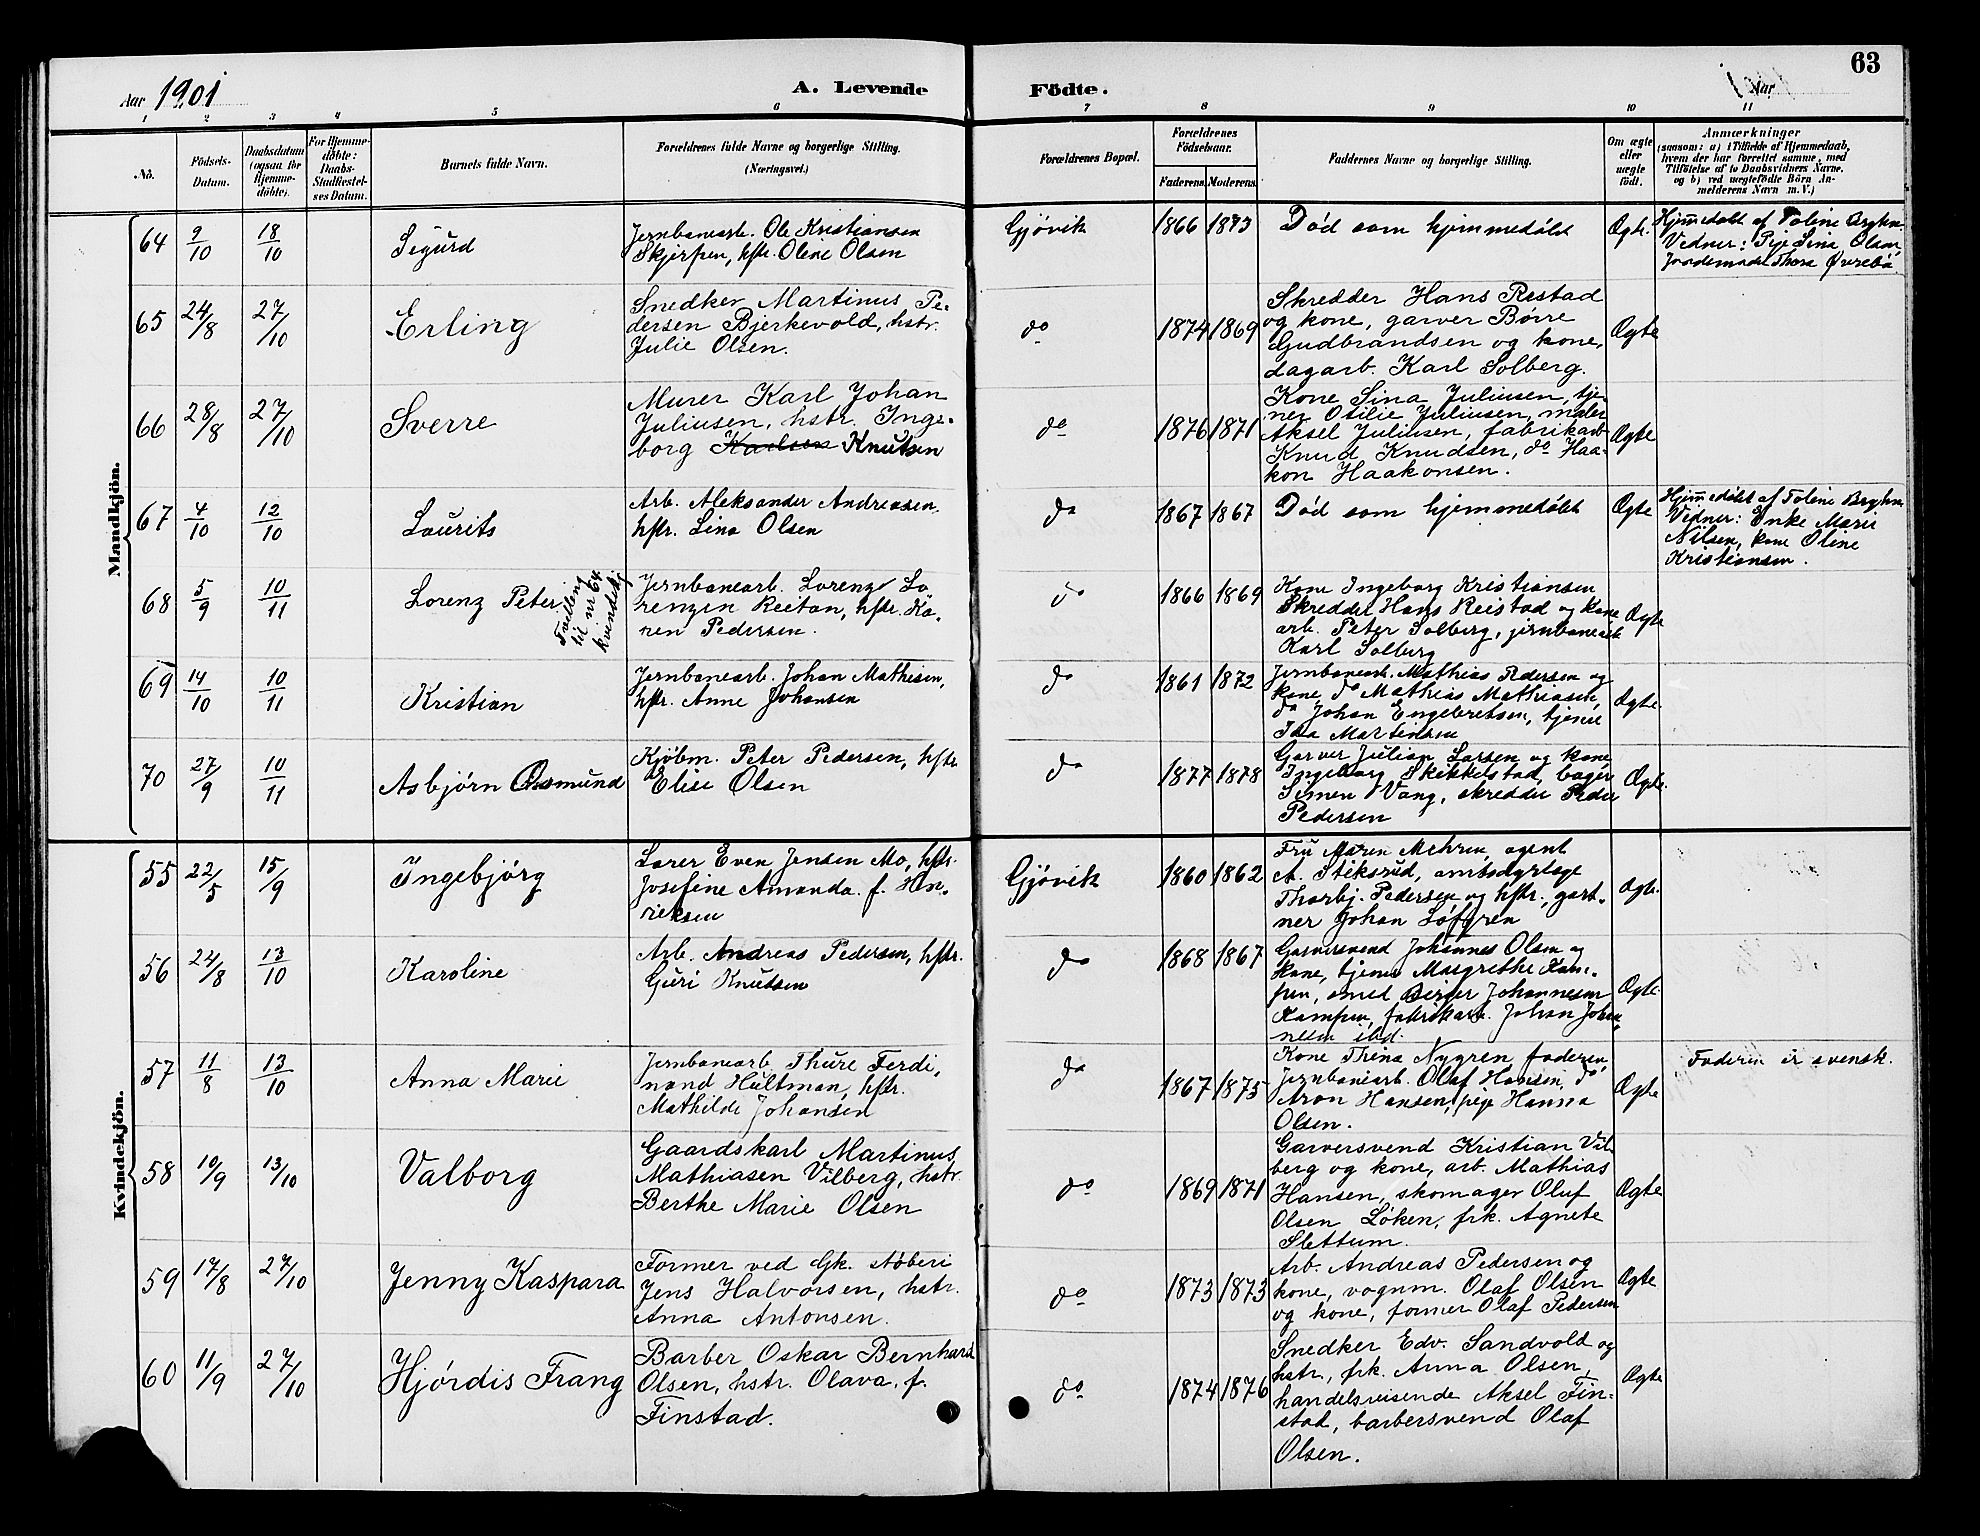 63
Aar 1901
A. Levende
Födte.
Aar
1 2 3 4 5 6 7 8 9 10 11
No.
Födsels-
Datum.
Daabsdatum
(ogsaa for
Hjemme-
döbte).
For Hjemme-
döbte:
Daabs-
Stadfæstel-
ses Datum.
Barnets fulde Navn.
Forældrenes fulde Navne og borgerlige Stilling.
(Næringsvei.)
Forældrenes Bopæl.
Forældrenes
Födselsaar.
Faderens. Moderens.
Faddernes Navne og borgerlige Stilling.
Om ægte
eller
uægte
født.
Anmærkninger
(saasom: a) i Tilfælde af Hjemmedaab,
hvem der har forrettet samme, med
Tilföielse af to Daabsvidners Navne,
og b) ved uægtefödte Börn An-
melderens Navn m. V.)
Mandkjön.
64 9/10 18/10 Sigurd
Jernbanearb. Ole Kristiansen
Skjerpen, hstr. Oline Olsen
Gjövik 1866 1873 Död som hjemmedöbt Ægte.
Hjemmedöbt af Toline
Vidner: Pige Lina Olsen,
Jordemoder Thora Øvrebö
65 24/8 27/10 Erling
Snedker Martinus Pe-
dersen Bjerkevold, hstr.
Julie Olsen.
do 1874 1869
Skredder Hans Restad
og kone, garver Børre
Gudbrandsen og kone,
dagarb. Karl Solberg.
Ægte
66 28/8 27/10 Sverre
Murer Karl Johan
Juliusen, hstr. Inge-
borg Karlsen Knutsen
do 1876 1871
Kone Lina Juliusen, tje-
ner Otilie Juliusen, maler
Aksel Juliusen, fabrikarb.
Knud Knudsen, do Haa-
kon Haakonsen.
Ægte
67 4/10 12/10 Laurits
Arb. Aleksander Andreasen,
hstr. Lina Olsen
do 1867 1867 Död som hjemmedöbt Ægte
Hjemmedöbt af Toline
Vidner: Enke Marie
Nilsen, kone Oline
Kristiansen.
68 5/9 10/11 Lorenz Peter.
Tvilling
til nr 64
kvindekj
Jernbanearb. Lorenz Lo-
renzen Reitan, hstr. Ka-
ren Pedersen.
do 1866 1869
Kone Ingeborg Kristiansen
Skredder Hans Reistad og kone
arb. Peter Solberg, jernbanearb
Karl Solberg
Ægte
69 14/10 10/11 Kristian
Jernbanearb. Johan Mathisen,
hstr. Anne Johansen
do 1861 1872
Jernbanearb. Mathias Pedersen og
kone, do Mathias Mathiasen,
do Johan Engebretsen, tjener
Ida Martinsen
Ægte.
70 27/9 10/11 Asbjørn Osmund
Kjöbm. Peter Pedersen, hstr.
Elise Olsen
do 1877 1878
Garver Julian Larsen og kone
Ingeborg Skikkelstad, bager
Simen Vang, skredder Peder
Pedersen
Ægte.
Kvindekjön.
55 22/5 15/9 Ingebjørg
Lærer Even Jensen Mo, hstr.
Josefine Amanda f. Hen-
riksen
Gjövik 1860 1862
Fru Maren Mehren, agent
A. Stiksrud, amtsdyrlæge
Thorbj. Pedersen og hstr., gart-
ner Johan Löfgren
Ægte.
56 24/8 13/10 Karoline
Arb. Andreas Pedersen, hstr.
Guri Knutsen
do 1868 1867
Garversvend Johannes Olsen og
kone, tjener Margrethe Kam-
pen, smed Birger Johannesen
Kampen, fabrikarb. Johan Johan-
nesen ibd.
Ægte.
57 11/8 13/10 Anna Marie
Jernbanearb. Thure Ferdi-
nand Hultman, hstr.
Mathilde Johansen
do 1867 1875
Kone Thina Nygren, faderen,
Jernbanearb. Olaf Hansen, do
Aron Hansen, pige Hanna
Olsen.
Ægte
Faderen er svensk.
58 10/9 13/10 Valborg
Gaardskarl Martinus
Mathiasen Vilberg, hstr.
Berthe Marie Olsen
do 1869 1871
Garversvend Kristian Vil-
berg og kone, arb. Mathias
Hansen, skomager Oluf
Olsen Løken, frk. Agnete
Slettum.
Ægte
59 17/8 27/10 Jenny Kaspara
Former ved Gk. støberi
Jens Halvorsen, hstr.
Anna Antonsen.
do 1873 1873
Arb. Andreas Pedersen og
kone, vognm. Olaf Olsen
og kone, former Olaf Pedersen
Ægte
60 11/9 27/10 Hjørdis Frang
Barber Oskar Bernhard
Olsen, hstr. Olava, f.
Finstad.
do 1874 1876
Snedker Edv. Sandvold og
hstr., frk. Anna Olsen,
handelsreisende Aksel Fin-
stad, barbersvend Olaf
Olsen.
Ægte